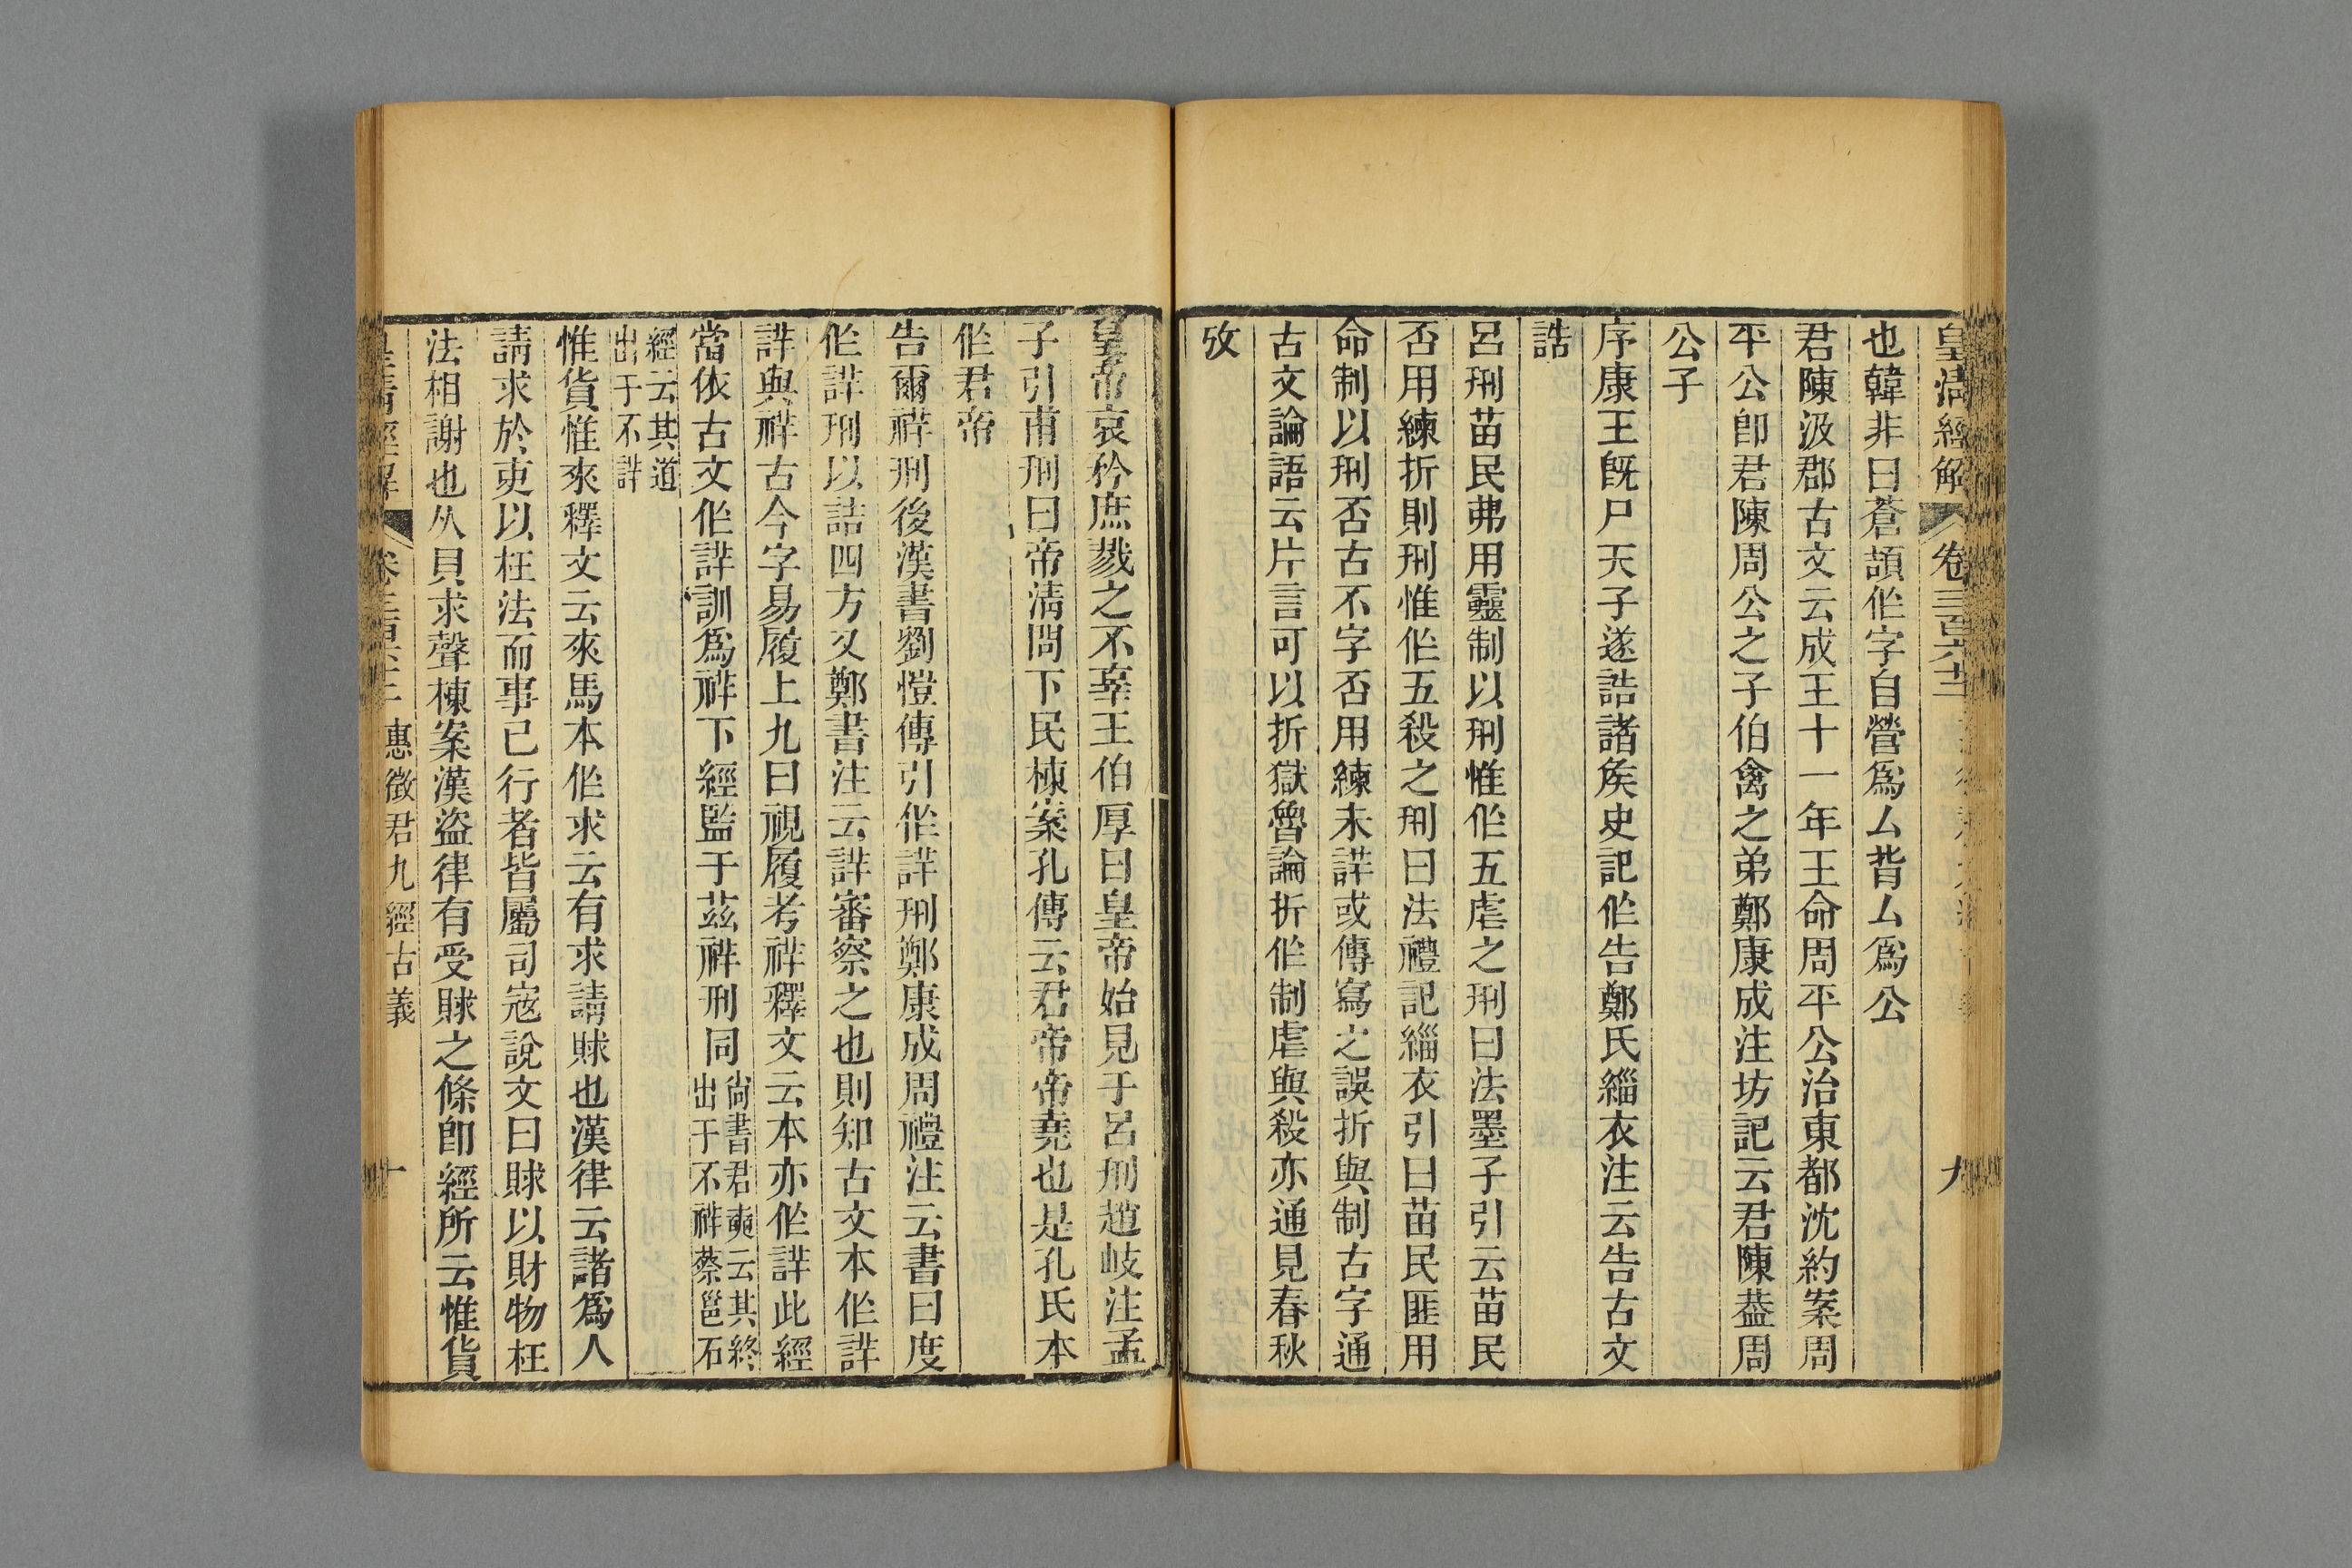 皇清經解 卷三百六十二 九
也韓非曰蒼頡作字自營爲厶背厶爲公
君陳汲郡古文云成王十一年王命周平公治東都沈約案周
平公卽君陳周公之子伯禽之弟鄭康成注坊記云君陳葢周
公子
序康王旣尸天子遂誥諸矦史記作告鄭氏緇衣注云告古文
誥
呂刑苗民弗用靈制以刑惟作五虐之刑曰法墨子引云苗民
否用練折則刑惟作五殺之刑曰法禮記緇衣引曰苗民匪用
命制以刑否古不字否用練未詳或傳寫之誤折與制古字通
古文論語云片言可以折獄魯論折作制虐與殺亦通見春秋
攷
皇帝哀矜庶戮之不辜王伯厚曰皇帝始見于呂刑趙岐注孟
子引甫刑曰帝淸問下民棟案孔傳云君帝帝堯也是孔氏本
作君帝
告爾祥刑後漢書劉愷傳引作詳刑鄭康成周禮注云書曰度
作詳刑以詰四方又鄭書注云詳審察之也則知古文本作詳
詳與祥古今字易履上九曰視履考祥釋文云本亦作詳此經
當依古文作詳訓爲祥下經監于茲祥刑同尙書君奭云其終
出于不祥蔡邕石
經云其道
出于不詳
惟貨惟來釋文云來馬本作求云有求請賕也漢律云諸爲人
請求於吏以枉法而事已行者皆屬司寇說文曰賕以財物枉
法相謝也从貝求聲棟案漢盜律有受賕之條卽經所云惟貨
皇清經解 惠徵君九經古義 十